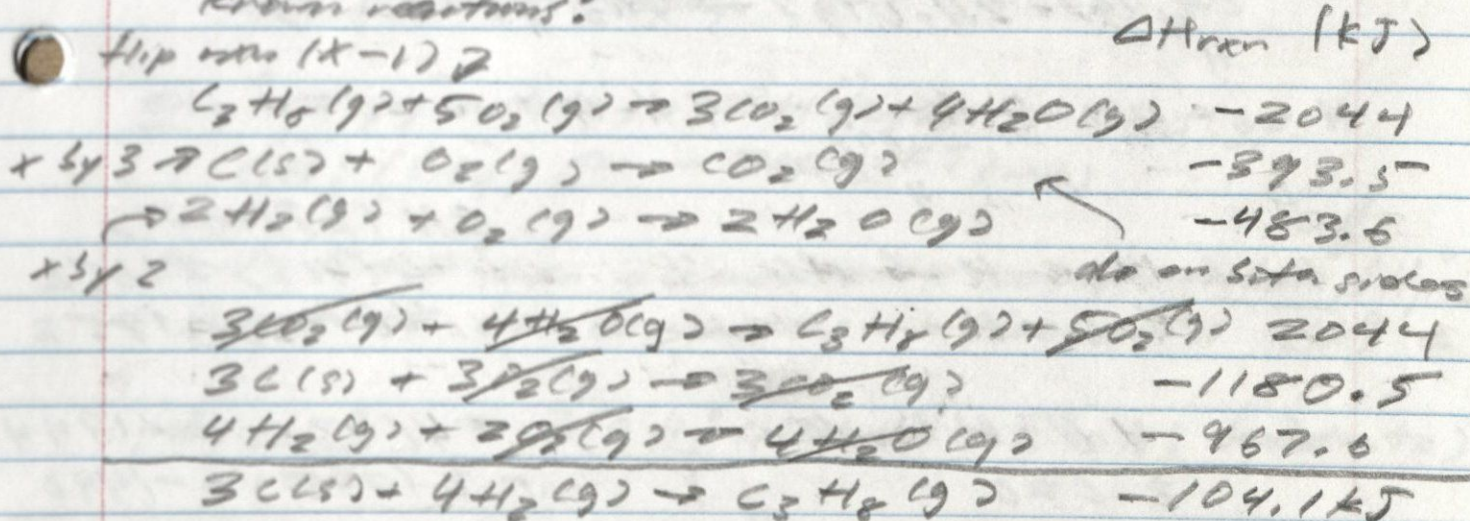 Known reactions:
ΔHrxn (kJ)
flip rxn (x-1) ↴
C₃H₈(g) + 5O₂(g) → 3CO₂(g) + 4H₂O(g) -2044
x by 3 ↗ C(s) + O₂(g) → CO₂(g) -393.5
→ 2H₂(g) + O₂(g) → 2H₂O(g) -483.6
x by 2
do on both sides
3CO₂(g) + 4H₂O(g) → C₃H₈(g) + 5O₂(g) 2044
3C(s) + 3O₂(g) → 3CO₂(g) -1180.5
4H₂(g) + 2O₂(g) → 4H₂O(g) -967.6
3C(s) + 4H₂(g) → C₃H₈(g) -104.1kJ